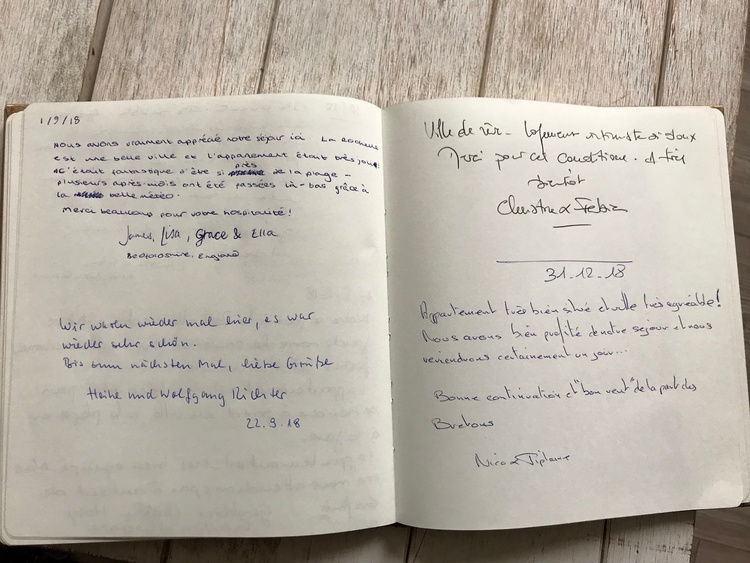 1/9/18
Nous avons vraiment apprécié notre séjour ici La Rochelle
est une belle ville et l'appartement était très joli!
C'était fantastique d'être si près de la plage –
plusieurs après-mois ont été passées là-bas grâce à
la belle météo.
Merci beaucoup pour votre hospitalité!
James, Lisa, Grace & Ella
Bedfordshire, England
Wir waren wieder mal hier, es war
wieder sehr schön.
Bis zum nächsten Mal, liebe Grüße
Heike und Wolfgang Richter
22.9.18
Ville de rêve - logement intimiste et doux
Merci pour ces conditions. A très
bientôt
Christine &
31-12-18
Appartement très bien situé et ville très agréable!
Nous avons bien profité de notre séjour et nous
reviendrons certainement un jour...
Bonne continuation et "bon vent" de la part des
Bretons
Nico &